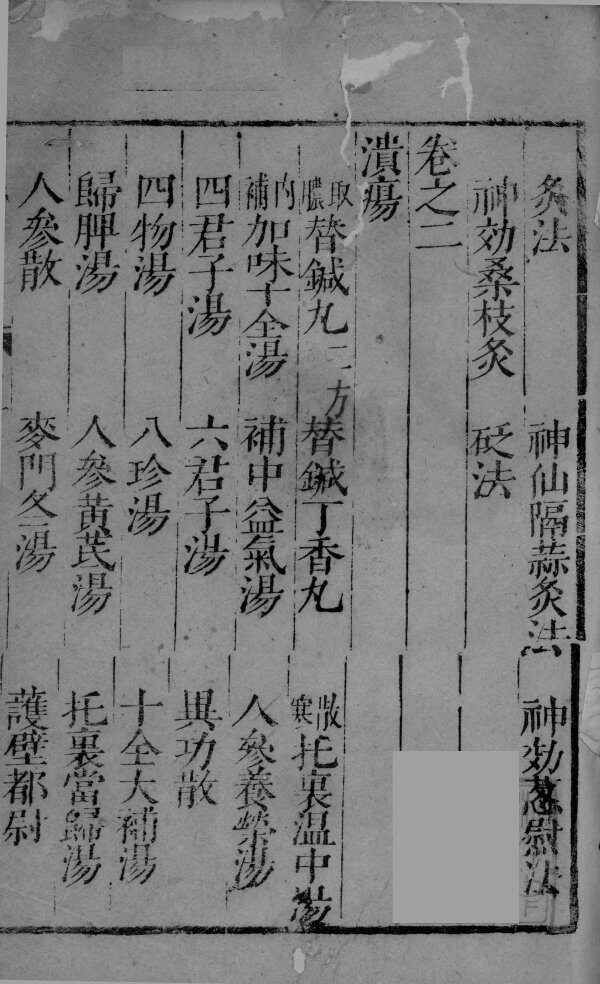 灸法 神仙隔蒜灸法 神効葱慰法
神効桑枝灸 砭法
卷之二
潰瘍
取膿替鍼丸二方 替鍼丁香丸 散寒托裏温中湯
内補加味十全湯 補中益氣湯 人參養榮湯
四君子湯 六君子湯 異功散
四物湯 八珍湯 十全大補湯
歸脾湯 人參黃芪湯 托裏當歸湯
人參散 麥門冬湯 䕶壁都尉